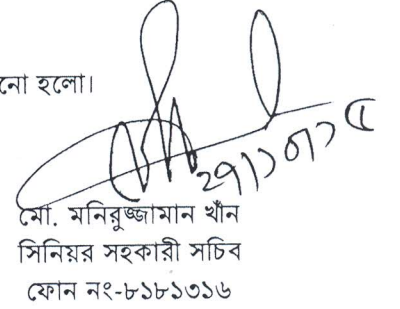 নো হলো।
মো. মনিরুজ্জামান খাঁন
সিনিয়র সহকারী সচিব
ফোন নং-৮১৮১৩১৬